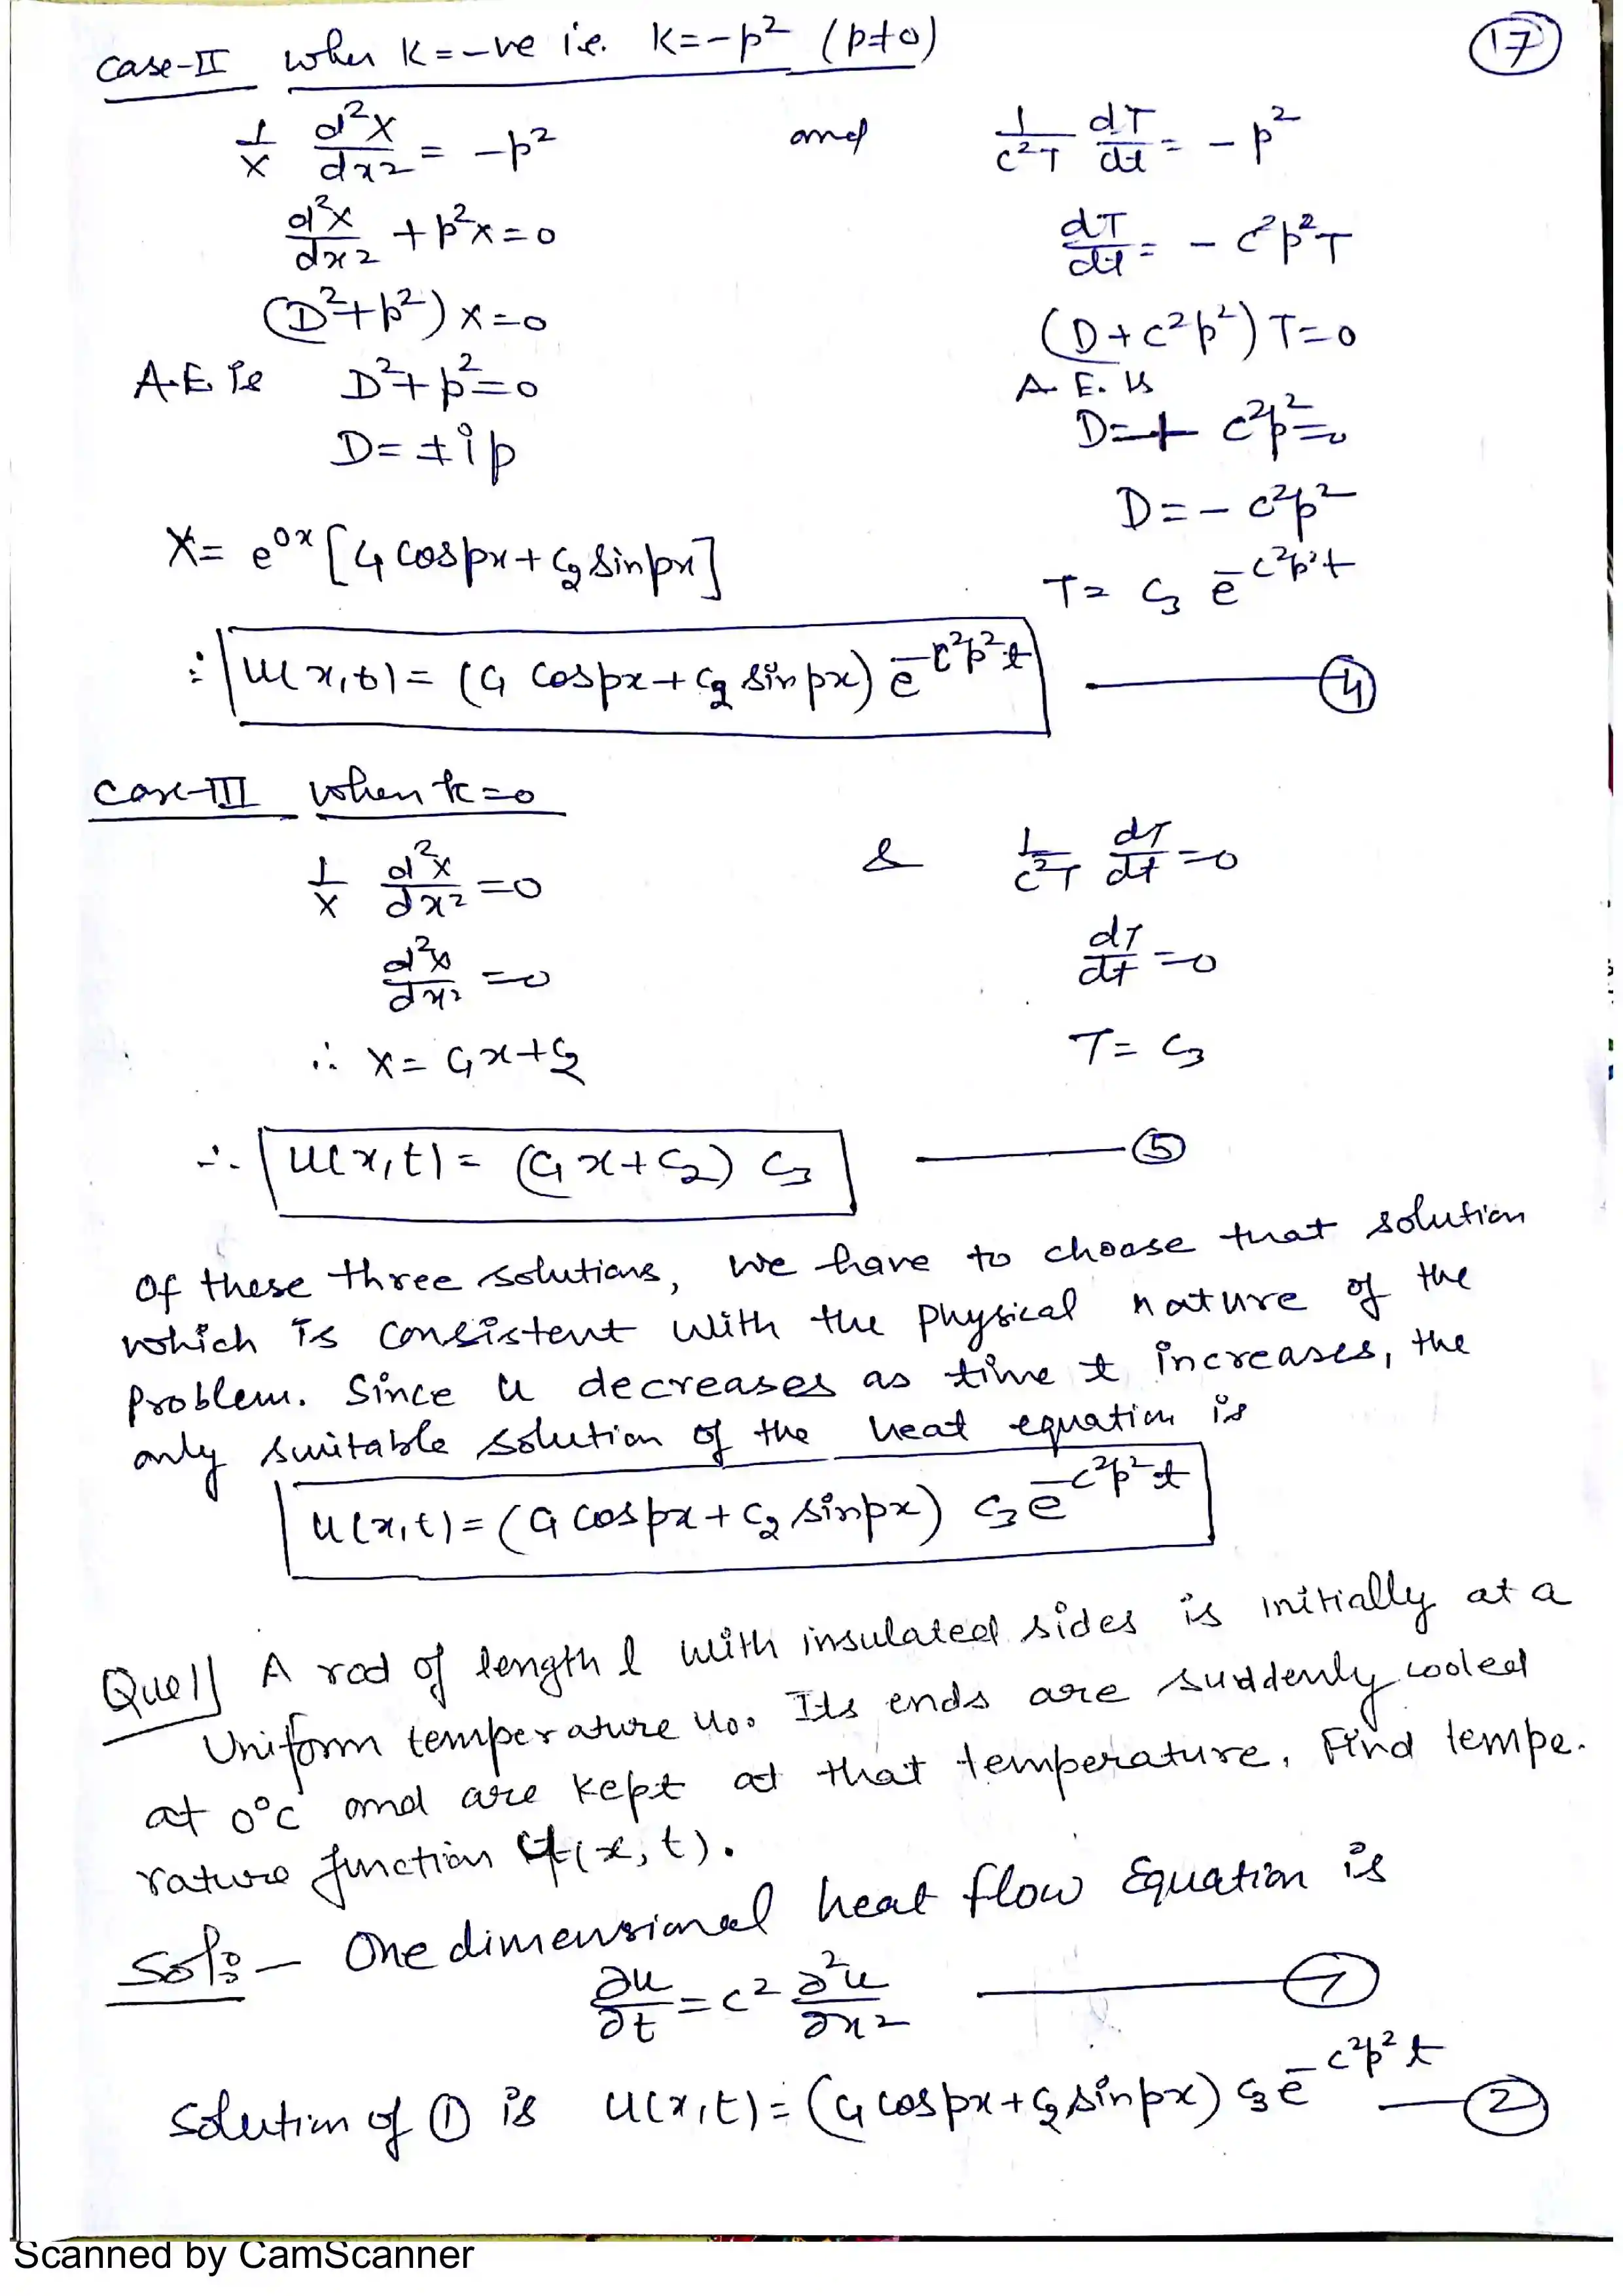 Case-II when K=-ve i.e. K=-p² (p≠0)
17
1/X d²X/dx² = -p² and 1/c²T dT/dt = -p²
d²X/dx² + p²X=0 dT/dt = -c²p²T
(D²+p²)X=0 (D+c²p²)T=0
A.E. is D²+p²=0 A.E. is
D=±ip D+c²p²=0
D=-c²p²
X= e^{0x}[C₁ cospx+C₂ sinpx] T= C₃ e^{-c²p²t}
∴ u(x,t)= (C₁ cospx+C₂ sinpx) e^{-c²p²t} ④
Case-III when k=0
1/X d²X/dx² =0 & 1/c²T dT/dt =0
d²X/dx² =0 dT/dt =0
∴ X= C₁x+C₂ T= C₃
∴ u(x,t)= (C₁x+C₂) C₃ ⑤
Of these three solutions, we have to choose that solution
which is consistent with the physical nature of the
problem. Since u decreases as time t increases, the
only suitable solution of the heat equation is
u(x,t)=(C₁ cospx+C₂ sinpx) C₃e^{-c²p²t}
Que1) A rod of length l with insulated sides is initially at a
Uniform temperature u₀. Its ends are suddenly cooled
at 0°C and are kept at that temperature. Find tempe-
rature function u(x,t).
Sol:- One dimensional heat flow Equation is
∂u/∂t = c² ∂²u/∂x² ①
Solution of ① is u(x,t)= (C₁ cospx+C₂ sinpx) C₃e^{-c²p²t} ②
Scanned by CamScanner